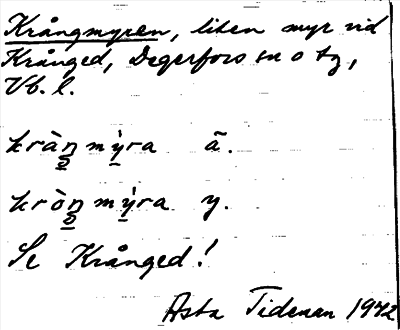 Krångmyren, liten myr vid
Krånged, Degerfors sn o tg,
Vb. l.
kràŋmỳra ä.
kròŋmỳra y.
Se Krånged!
Asta Tideman 1942